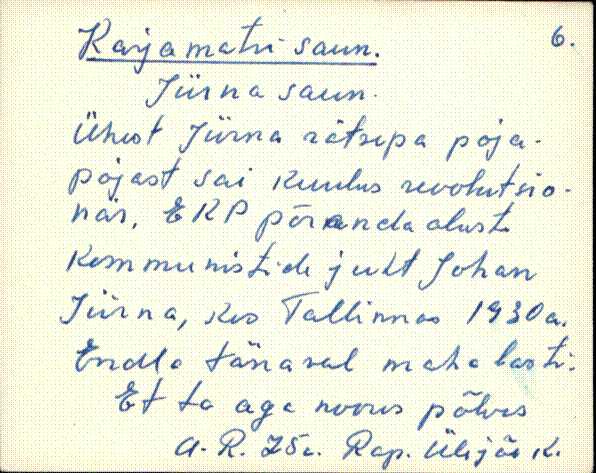 Karjamatsi saun. 6.
Jürna saun.
Ühest Jürna rätsepa poja-
pojast sai kuulus revolutsio-
när, EKP põranda alust
kommunistide juht Johan
Jürna, kes Tallinnas 1930a.
Endla tänaval maha lasti.
Et ta aga noorus põlves
A. R. 75a. Rap. Ülejõe k.